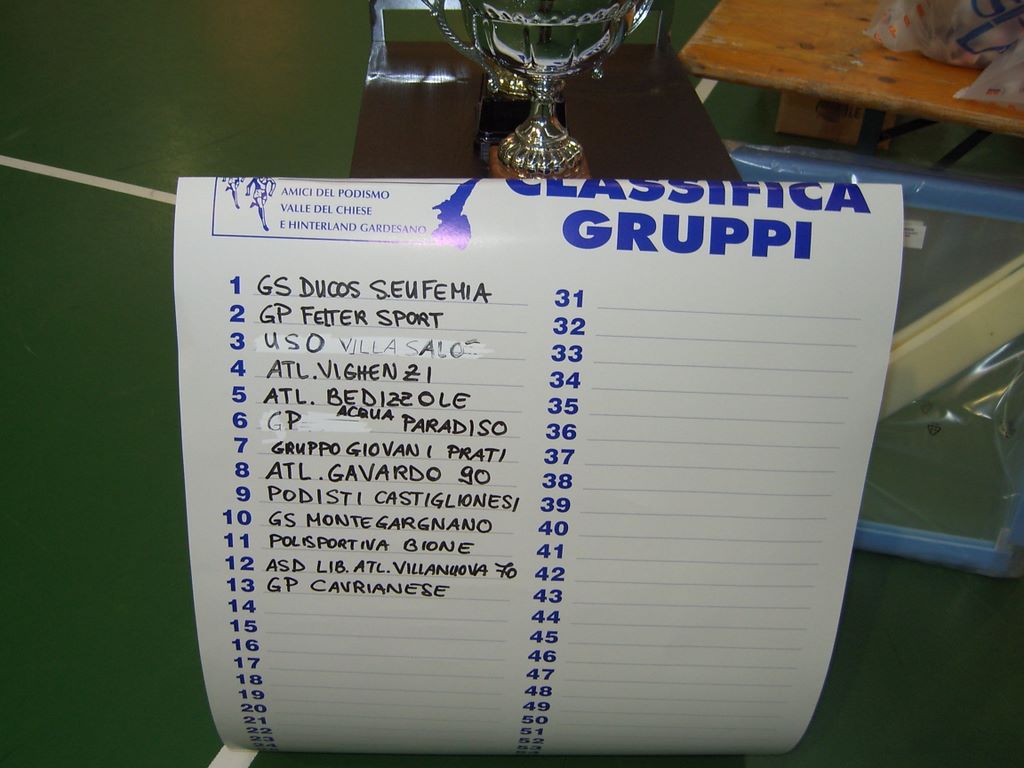 AMICI DEL PODISMO
VALLE DEL CHIESE
E HINTERLAND GARDESANO
CLASSIFICA
GRUPPI
1 GS DUCOS S.EUFEMIA
2 GP FELTER SPORT
3 USO VILLA SALO
4 ATL. VIGHENZI
5 ATL. BEDIZZOLE
6 GP ACQUA PARADISO
7 GRUPPO GIOVANI PRATI
8 ATL. GAVARDO 90
9 PODISTI CASTIGLIONESI
10 GS MONTEGARGNANO
11 POLISPORTIVA BIONE
12 ASD LIB. ATL. VILLANUOVA 70
13 GP CAVRIANESE
14
15
16
17
18
19
20
21
22
23
31
32
33
34
35
36
37
38
39
40
41
42
43
44
45
46
47
48
49
50
51
52